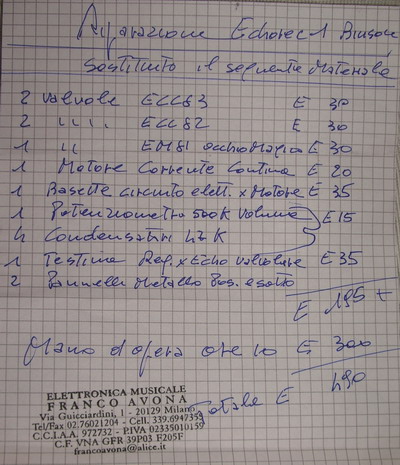 Riparazione Echorec 1 Binson
Sostituito il seguente Materiale
2 Valvole ECC83 E 30
2 " " ECC82 E 30
1 " EM81 occhioMagico E 30
1 Motore Corrente Continua E 20
1 Basette circuito elett. x Motore E 35
1 Potenziometro 500K Volume E 15
4 Condensatori 47 K
1 Testina Reg. x Echo valvolare E 35
2 Pannelli Metallo Pos. e sotto
E 195 +
Mano d'opera ore 10 E 300
Totale E 490
ELETTRONICA MUSICALE
FRANCO AVONA
Via Guicciardini, 1 - 20129 Milano
Tel/Fax 02.76021204 - Cell. 339.6947353
C.C.I.A.A. 972732 - P.IVA 02335010159
C.F. VNA GFR 39P03 F205F
francoavona@alice.it